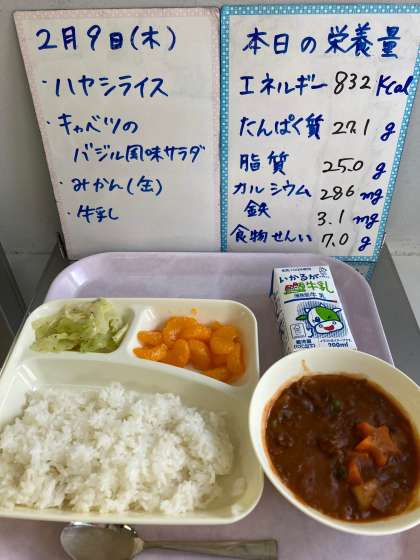 2月9日(木)
・ハヤシライス
・キャベツの
バジル風味サラダ
・みかん(缶)
・牛乳
本日の栄養量
エネルギー 832 Kcal
たんぱく質 27.1 g
脂質 25.0 g
カルシウム 286 mg
鉄 3.1 mg
食物せんい 7.0 g
いかるが
牛乳
200ml